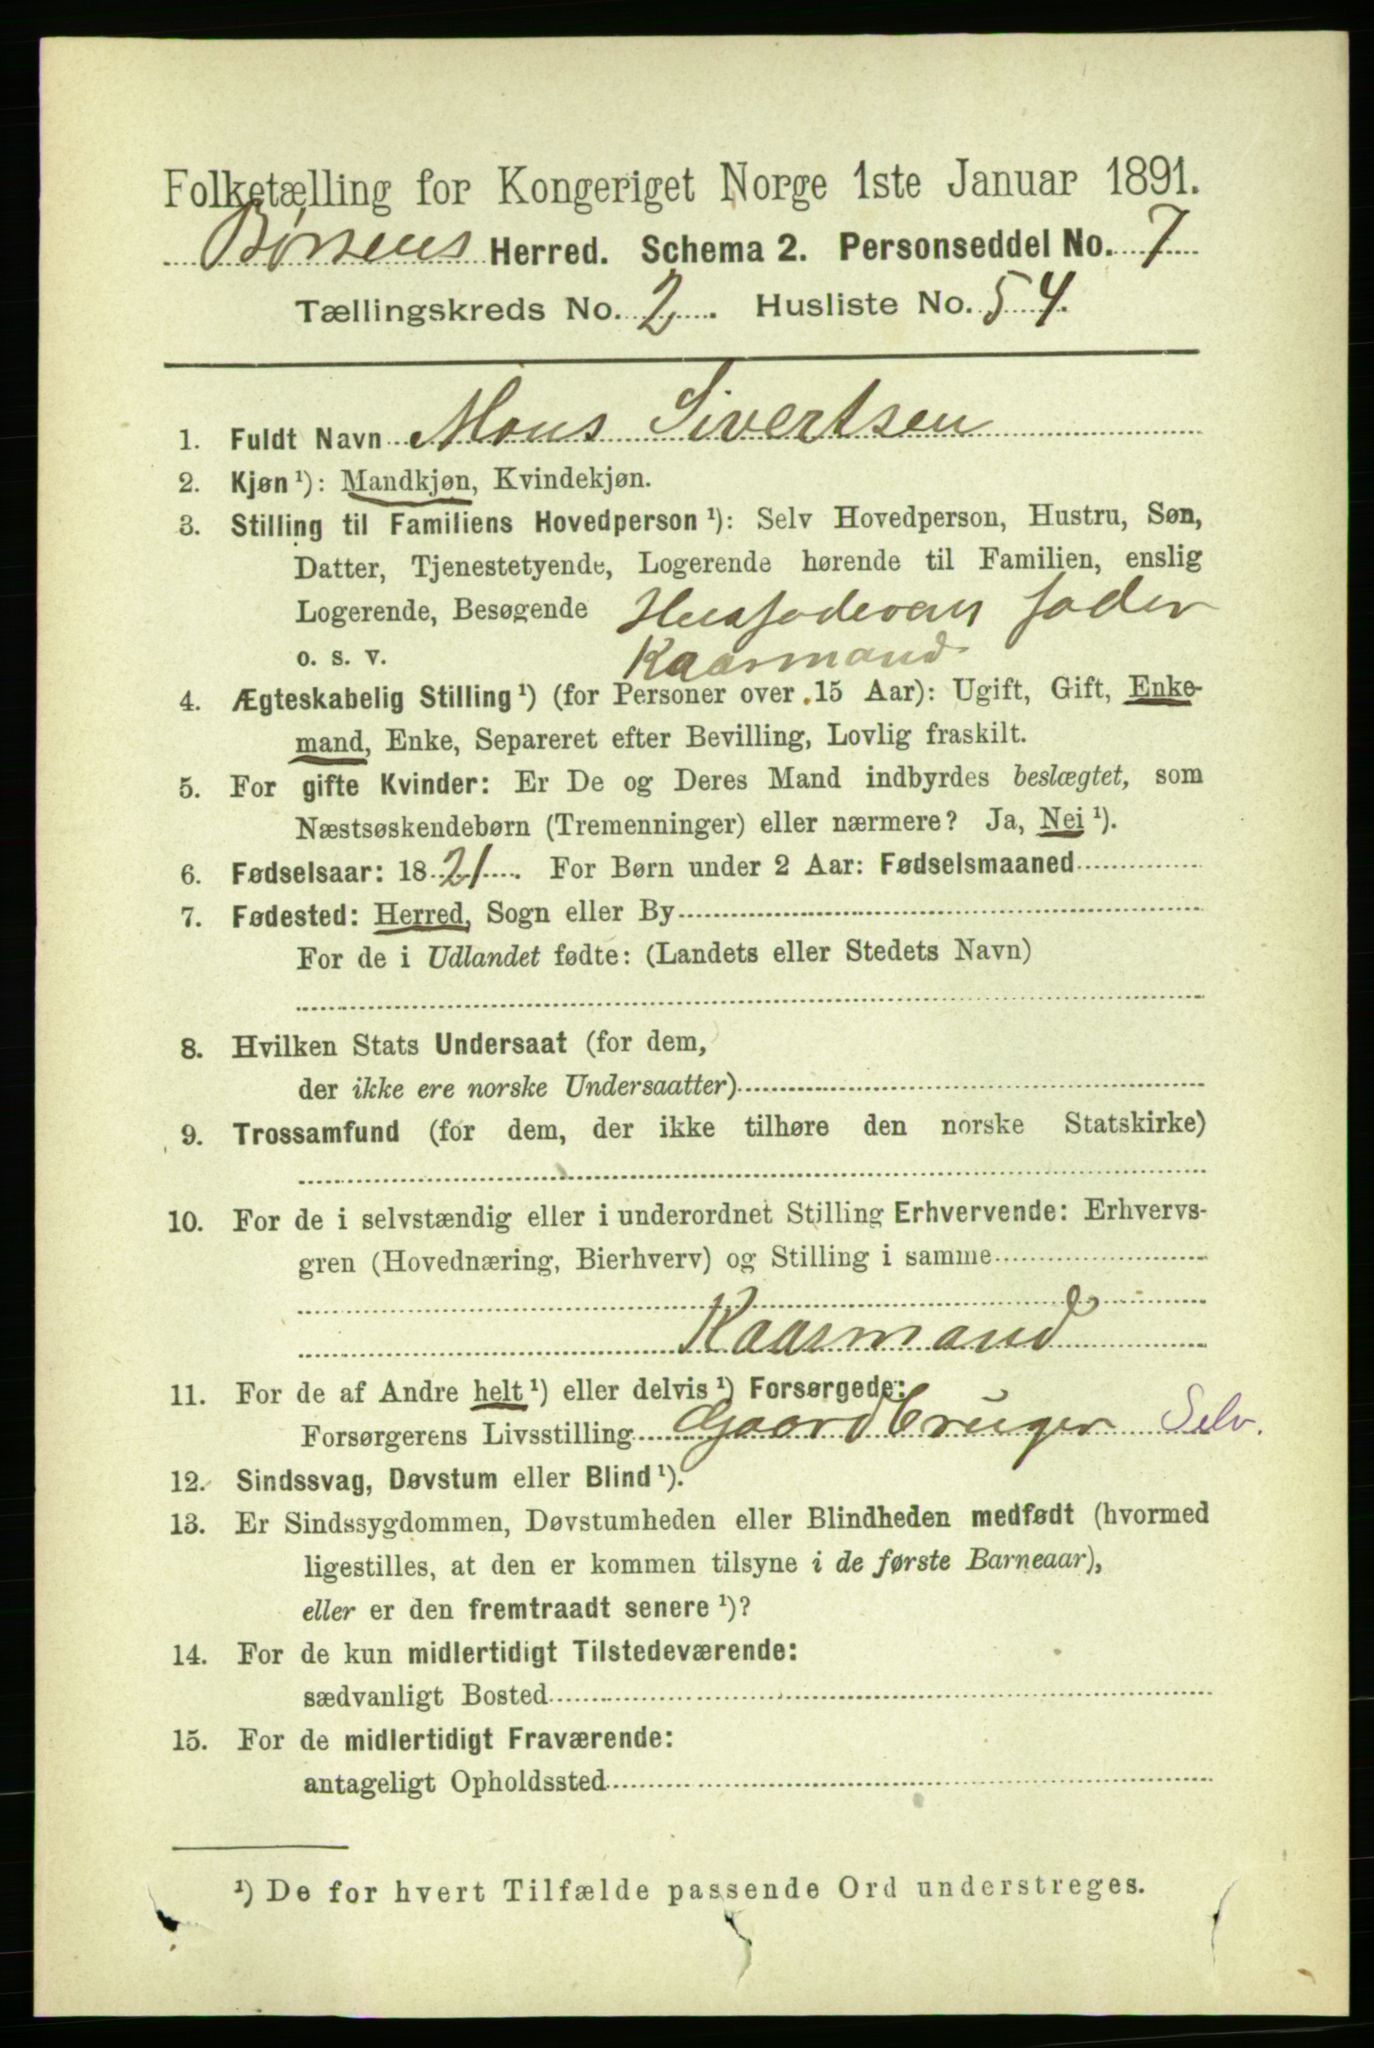 Folketælling for Kongeriget Norge 1ste Januar 1891.
Børsens Herred. Schema 2. Personseddel No. 7
Tællingskreds No. 2. Husliste No. 54.
1. Fuldt Navn Mons Sivertsen
2. Kjøn ¹): Mandkjøn, Kvindekjøn.
3. Stilling til Familiens Hovedperson ¹): Selv Hovedperson, Hustru, Søn,
Datter, Tjenestetyende, Logerende hørende til Familien, enslig
Logerende, Besøgende Husfaderens fader
o. s. v. Kaarmand
4. Ægteskabelig Stilling ¹) (for Personer over 15 Aar): Ugift, Gift, Enke-
mand, Enke, Separeret efter Bevilling, Lovlig fraskilt.
5. For gifte Kvinder: Er De og Deres Mand indbyrdes beslægtet, som
Næstsøskendebørn (Tremenninger) eller nærmere? Ja, Nei ¹).
6. Fødselsaar: 1821. For Børn under 2 Aar: Fødselsmaaned
7. Fødested: Herred, Sogn eller By
For de i Udlandet fødte: (Landets eller Stedets Navn)
8. Hvilken Stats Undersaat (for dem,
der ikke ere norske Undersaatter)
9. Trossamfund (for dem, der ikke tilhøre den norske Statskirke)
10. For de i selvstændig eller i underordnet Stilling Erhvervende: Erhvervs-
gren (Hovednæring, Bierhverv) og Stilling i samme
Kaarmand
11. For de af Andre helt ¹) eller delvis ¹) Forsørgede:
Forsørgerens Livsstilling Gaardbruger Selv.
12. Sindssvag, Døvstum eller Blind ¹).
13. Er Sindssygdommen, Døvstumheden eller Blindheden medfødt (hvormed
ligestilles, at den er kommen tilsyne i de første Barneaar),
eller er den fremtraadt senere ¹)?
14. For de kun midlertidigt Tilstedeværende:
sædvanligt Bosted
15. For de midlertidigt Fraværende:
antageligt Opholdssted
¹) De for hvert Tilfælde passende Ord understreges.